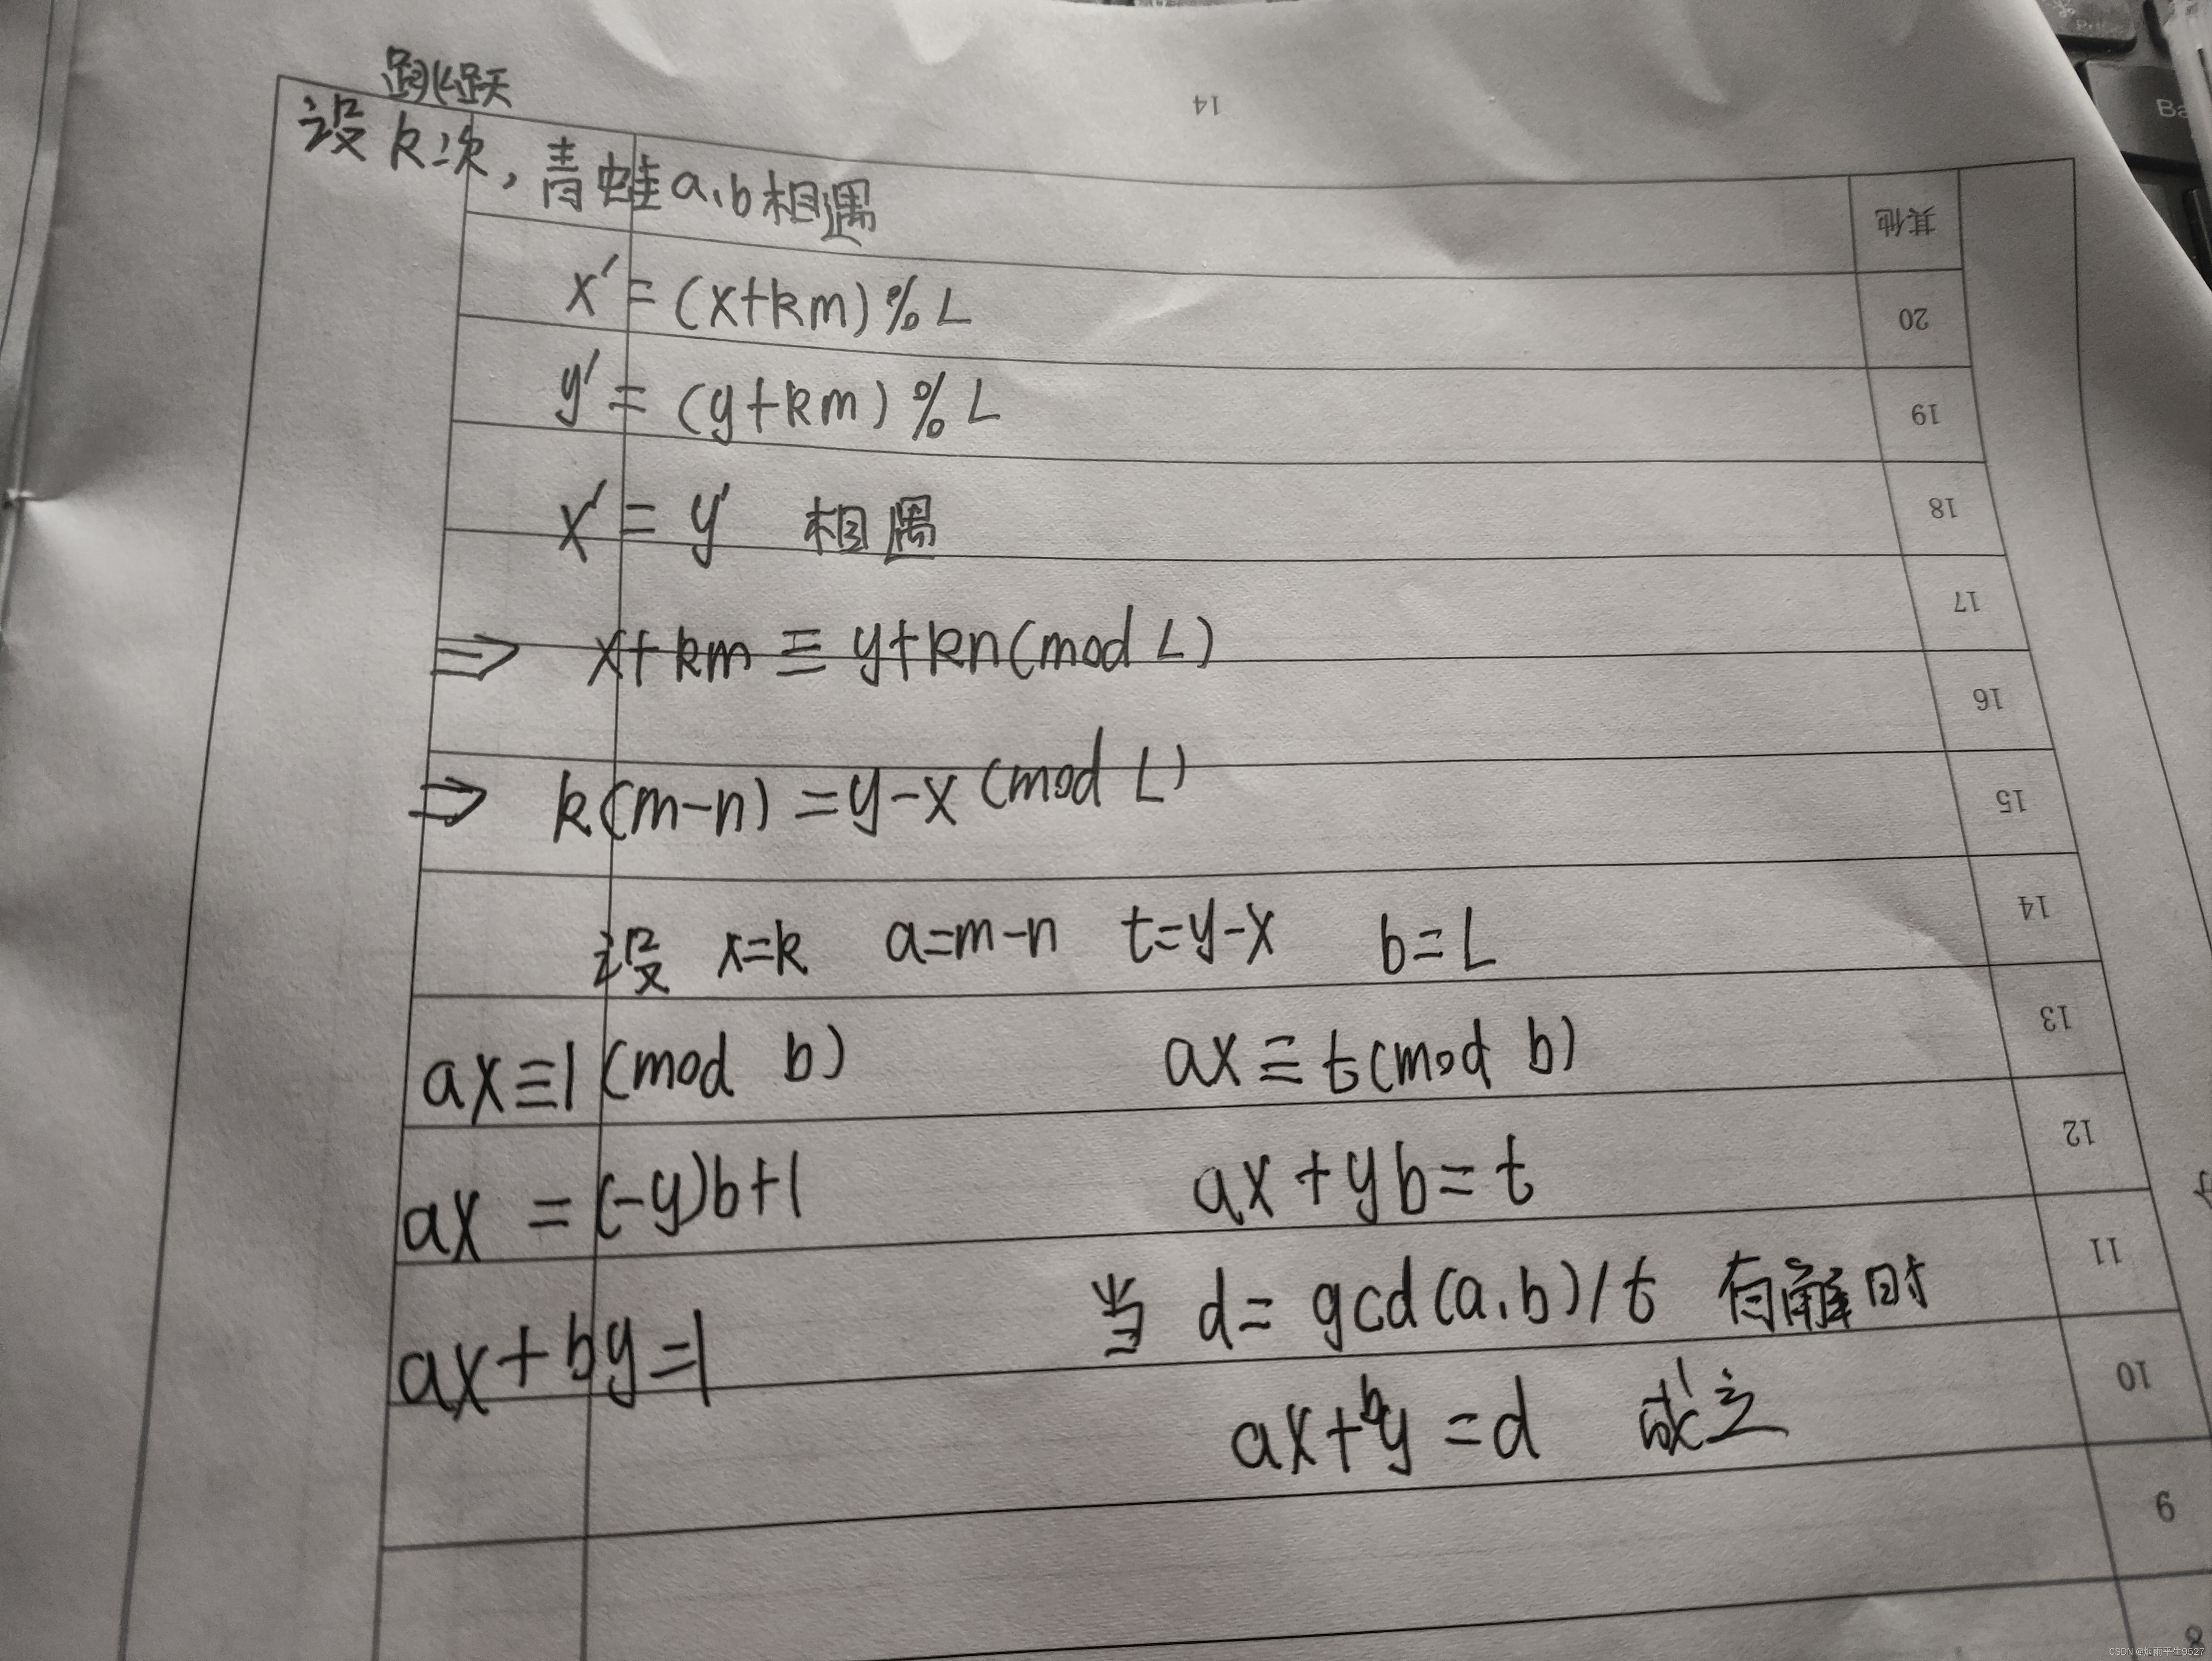 跳跃
设k次,青蛙a、b相遇
x′=(x+km)%L
y′=(y+km)%L
x′=y′ 相遇
⇒ x+km≡y+kn(mod L)
⇒ k(m-n)=y-x(mod L)
设 x=k a=m-n t=y-x b=L
ax≡1(mod b) ax≡t(mod b)
ax=(-y)b+1 ax+yb=t
当 d=gcd(a,b)/t 有解时
ax+by=1
ax+by=d 成立
14
其他
20
19
18
17
16
15
14
13
12
11
10
9
8
Ba
CSDN @烟雨平生9527